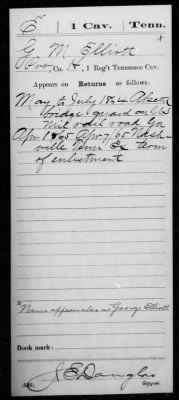 E | 1 Cav. | Tenn.
G M Elliott
Co. H, 1 Reg't Tennessee Cav.
Appears on Returns as follows:
May to July 1864 Absent
bridge guard on
rail road Ga
Apr 1865 Apr 7/65 Nash-
ville Tenn Ex term
of enlistment
* Name appears also as George Elliott
Book mark:
J E Douglas
Copyist.